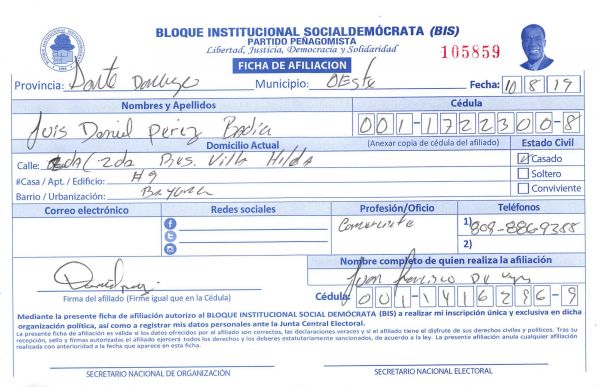 BLOQUE INSTITUCIONAL SOCIALDEMÓCRATA (BIS)
PARTIDO PEÑAGOMISTA
Libertad, Justicia, Democracia y Solidaridad
105859
FICHA DE AFILIACION
Provincia: Santo Domingo Municipio: OEste Fecha: 10/8/19
Nombres y Apellidos Cédula
Luis Daniel Perez Badia 001-1722300-8
Domicilio Actual (Anexar copia de cédula del afiliado) Estado Civil
Calle: 2da Villa Hilda Casado
#Casa / Apt. / Edificio: #9 Soltero
Barrio / Urbanización: Conviviente
Correo electrónico Redes sociales Profesión/Oficio Teléfonos
Comerciante 1) 809-8869388
2)
Nombre completo de quien realiza la afiliación
Juan Francisco
Firma del afiliado (Firme igual que en la Cédula) Cédula: 001-1416296-9
Mediante la presente ficha de afiliación autorizo al BLOQUE INSTITUCIONAL SOCIAL DEMÓCRATA (BIS) a realizar mi inscripción única y exclusiva en dicha
organización política, así como a registrar mis datos personales ante la Junta Central Electoral.
La presente ficha de afiliación es válida si los datos ofrecidos por el afiliado son correctos, las declaraciones veraces y si el afiliado tiene el disfrute de sus derechos civiles y políticos. Tras su
recepción, sello y firmas autorizadas el afiliado ejercerá todos los derechos y los deberes estatutariamente sancionados, de acuerdo a la ley. La presente afiliación anula cualquier afiliación
realizada con anterioridad a la fecha que aparece en esta ficha.
SECRETARIO NACIONAL DE ORGANIZACIÓN SECRETARIO NACIONAL ELECTORAL